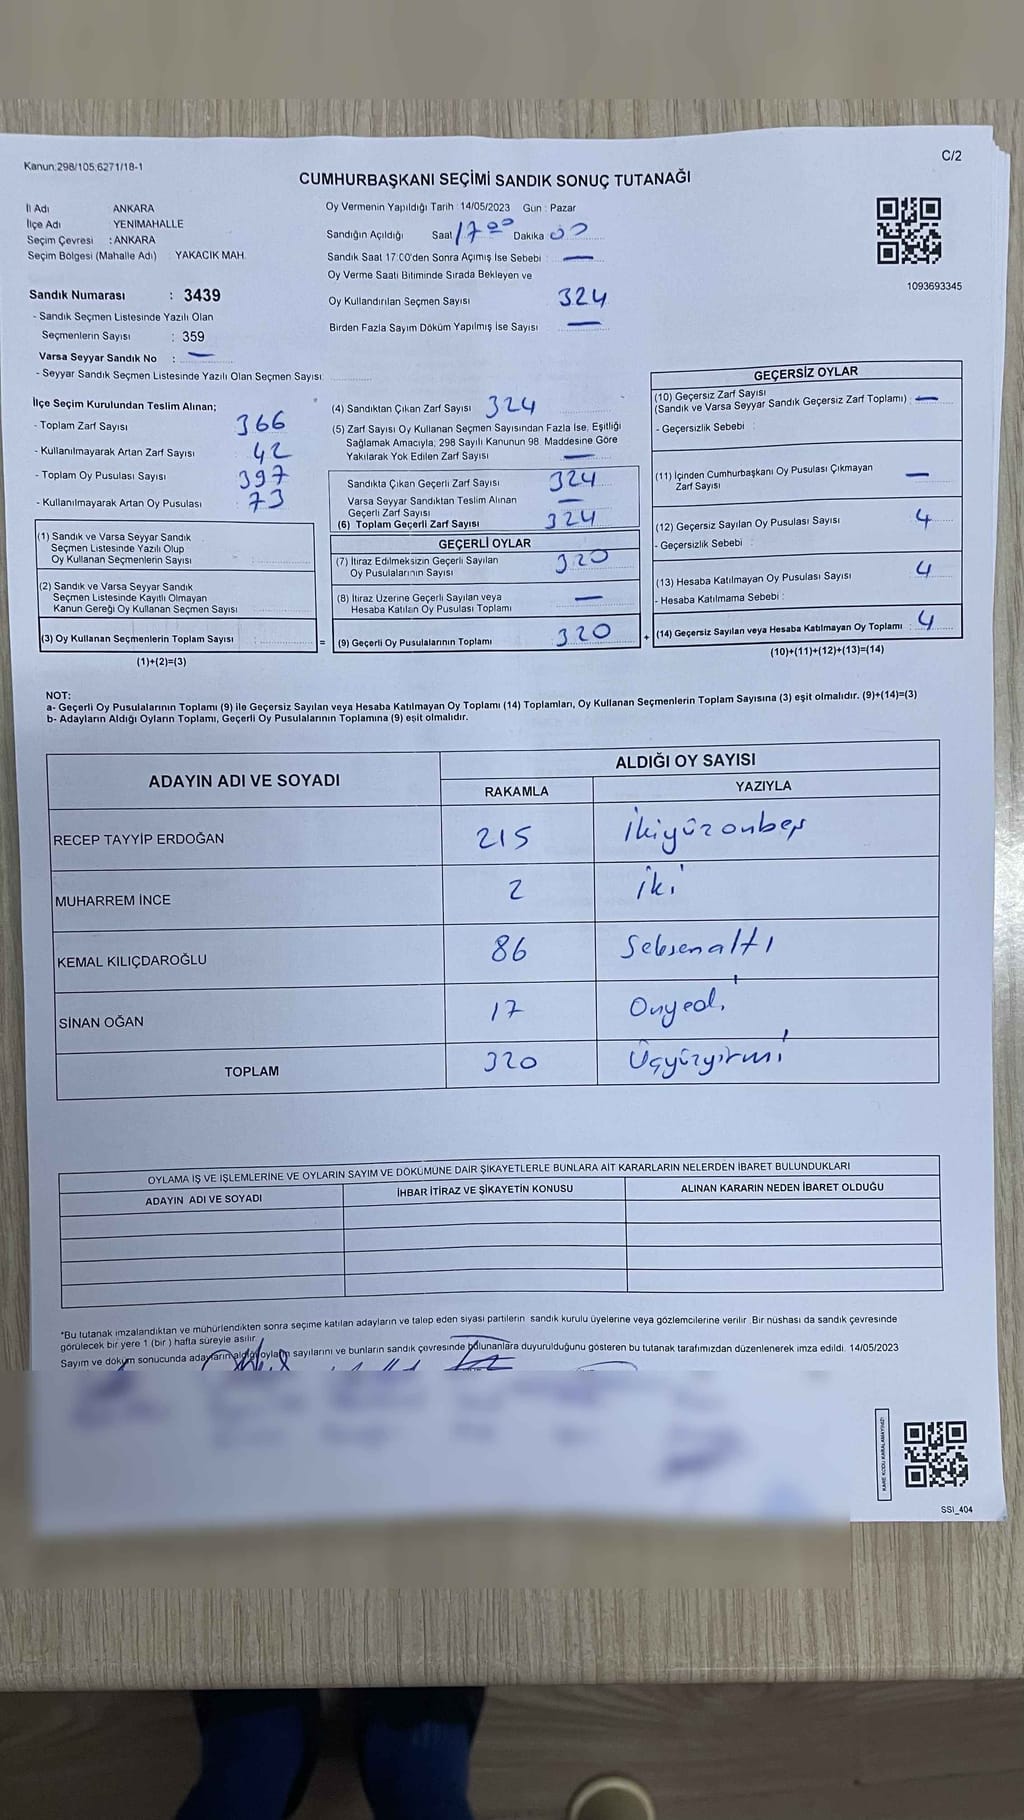 Kanun:298/105;6271/18-1
C/2
CUMHURBAŞKANI SEÇİMİ SANDIK SONUÇ TUTANAĞI
İl Adı ANKARA
İlçe Adı YENİMAHALLE
Seçim Çevresi : ANKARA
Seçim Bölgesi (Mahalle Adı) YAKACIK MAH.
Sandık Numarası : 3439
- Sandık Seçmen Listesinde Yazılı Olan
Seçmenlerin Sayısı : 359
Varsa Seyyar Sandık No : —
- Seyyar Sandık Seçmen Listesinde Yazılı Olan Seçmen Sayısı:
Oy Vermenin Yapıldığı Tarih : 14/05/2023 Gün : Pazar
Sandığın Açıldığı Saat 17 00 Dakika 00
Sandık Saat 17:00'den Sonra Açımış İse Sebebi : —
Oy Verme Saati Bitiminde Sırada Bekleyen ve
Oy Kullandırılan Seçmen Sayısı 324
Birden Fazla Sayım Döküm Yapılmış İse Sayısı —
1093693345
İlçe Seçim Kurulundan Teslim Alınan;
- Toplam Zarf Sayısı 366
- Kullanılmayarak Artan Zarf Sayısı 42
- Toplam Oy Pusulası Sayısı 397
- Kullanılmayarak Artan Oy Pusulası 73
(1) Sandık ve Varsa Seyyar Sandık
Seçmen Listesinde Yazılı Olup
Oy Kullanan Seçmenlerin Sayısı
(2) Sandık ve Varsa Seyyar Sandık
Seçmen Listesinde Kayıtlı Olmayan
Kanun Gereği Oy Kullanan Seçmen Sayısı
(3) Oy Kullanan Seçmenlerin Toplam Sayısı
(1)+(2)=(3)
(4) Sandıktan Çıkan Zarf Sayısı 324
(5) Zarf Sayısı Oy Kullanan Seçmen Sayısından Fazla İse, Eşitliği
Sağlamak Amacıyla; 298 Sayılı Kanunun 98. Maddesine Göre
Yakılarak Yok Edilen Zarf Sayısı —
Sandıkta Çıkan Geçerli Zarf Sayısı 324
Varsa Seyyar Sandıktan Teslim Alınan
Geçerli Zarf Sayısı —
(6) Toplam Geçerli Zarf Sayısı 324
GEÇERLİ OYLAR
(7) İtiraz Edilmeksizin Geçerli Sayılan
Oy Pusulalarının Sayısı 320
(8) İtiraz Üzerine Geçerli Sayılan veya
Hesaba Katılan Oy Pusulası Toplamı —
= (9) Geçerli Oy Pusulalarının Toplamı 320
GEÇERSİZ OYLAR
(10) Geçersiz Zarf Sayısı
(Sandık ve Varsa Seyyar Sandık Geçersiz Zarf Toplamı) : —
- Geçersizlik Sebebi :
(11) İçinden Cumhurbaşkanı Oy Pusulası Çıkmayan
Zarf Sayısı —
(12) Geçersiz Sayılan Oy Pusulası Sayısı 4
- Geçersizlik Sebebi :
(13) Hesaba Katılmayan Oy Pusulası Sayısı 4
- Hesaba Katılmama Sebebi :
+ (14) Geçersiz Sayılan veya Hesaba Katılmayan Oy Toplamı : 4
(10)+(11)+(12)+(13)=(14)
NOT:
a- Geçerli Oy Pusulalarının Toplamı (9) ile Geçersiz Sayılan veya Hesaba Katılmayan Oy Toplamı (14) Toplamları, Oy Kullanan Seçmenlerin Toplam Sayısına (3) eşit olmalıdır. (9)+(14)=(3)
b- Adayların Aldığı Oyların Toplamı, Geçerli Oy Pusulalarının Toplamına (9) eşit olmalıdır.
ADAYIN ADI VE SOYADI
ALDIĞI OY SAYISI
RAKAMLA YAZIYLA
RECEP TAYYİP ERDOĞAN 215 İkiyüzonbeş
MUHARREM İNCE 2 iki
KEMAL KILIÇDAROĞLU 86 Seksenaltı
SİNAN OĞAN 17 Onyedi
TOPLAM 320 Üçyüzyirmi
OYLAMA İŞ VE İŞLEMLERİNE VE OYLARIN SAYIM VE DÖKÜMÜNE DAİR ŞİKAYETLERLE BUNLARA AİT KARARLARIN NELERDEN İBARET BULUNDUKLARI
ADAYIN ADI VE SOYADI İHBAR İTİRAZ VE ŞİKAYETİN KONUSU ALINAN KARARIN NEDEN İBARET OLDUĞU
*Bu tutanak imzalandıktan ve mühürlendikten sonra seçime katılan adayların ve talep eden siyasi partilerin sandık kurulu üyelerine veya gözlemcilerine verilir. Bir nüshası da sandık çevresinde
görülecek bir yere 1 (bir ) hafta süreyle asılır.
Sayım ve döküm sonucunda adayların aldığı oyların sayılarını ve bunların sandık çevresinde bulunanlara duyurulduğunu gösteren bu tutanak tarafımızdan düzenlenerek imza edildi. 14/05/2023
KARE KODU KARALAMAYINIZ!
SSI_404